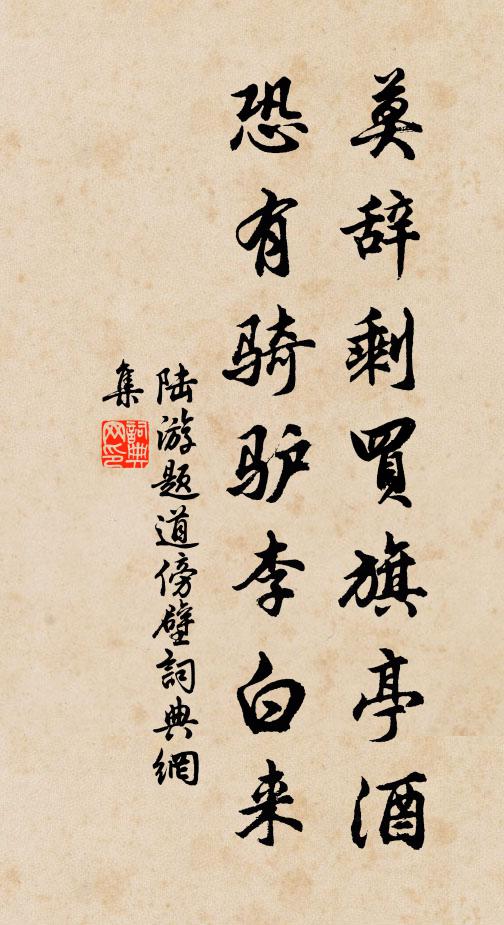 莫辞剩買旗亭酒
恐有骑驴李白来
陆游题道傍壁詞典網
集
詞典
网印